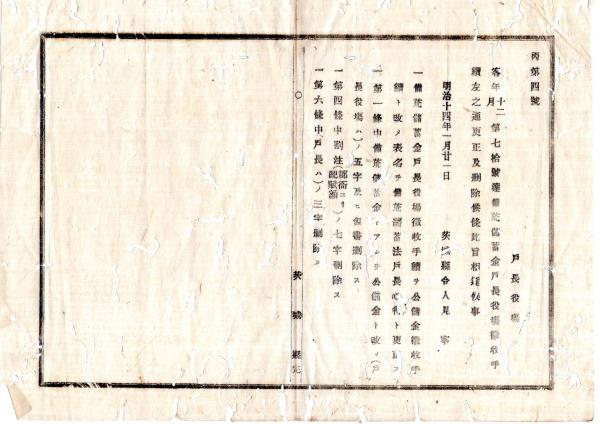 丙第四號
戸長役場
客年十二月第七拾號達備荒儲蓄金戸長役場徴收手
續左之通更正及删除候條此旨相達候事
明治十四年一月廿一日 茨城縣令人見寧
一備荒儲蓄金戸長役場徴收手續ヲ公儲金徴收手
續ト改メ表名ヲ備荒儲蓄法戸長心得ト更正ス
一第一條中備荒儲蓄金トアルヲ公儲金ト改メ(戸
長役場ハ)ノ五字及ヒ但書删除ス
一第四條中割注(郡衙ヨリ配賦額)ノ七字删除ス
一第六條中戸長ハ)ノ三字删除ス
茨城縣